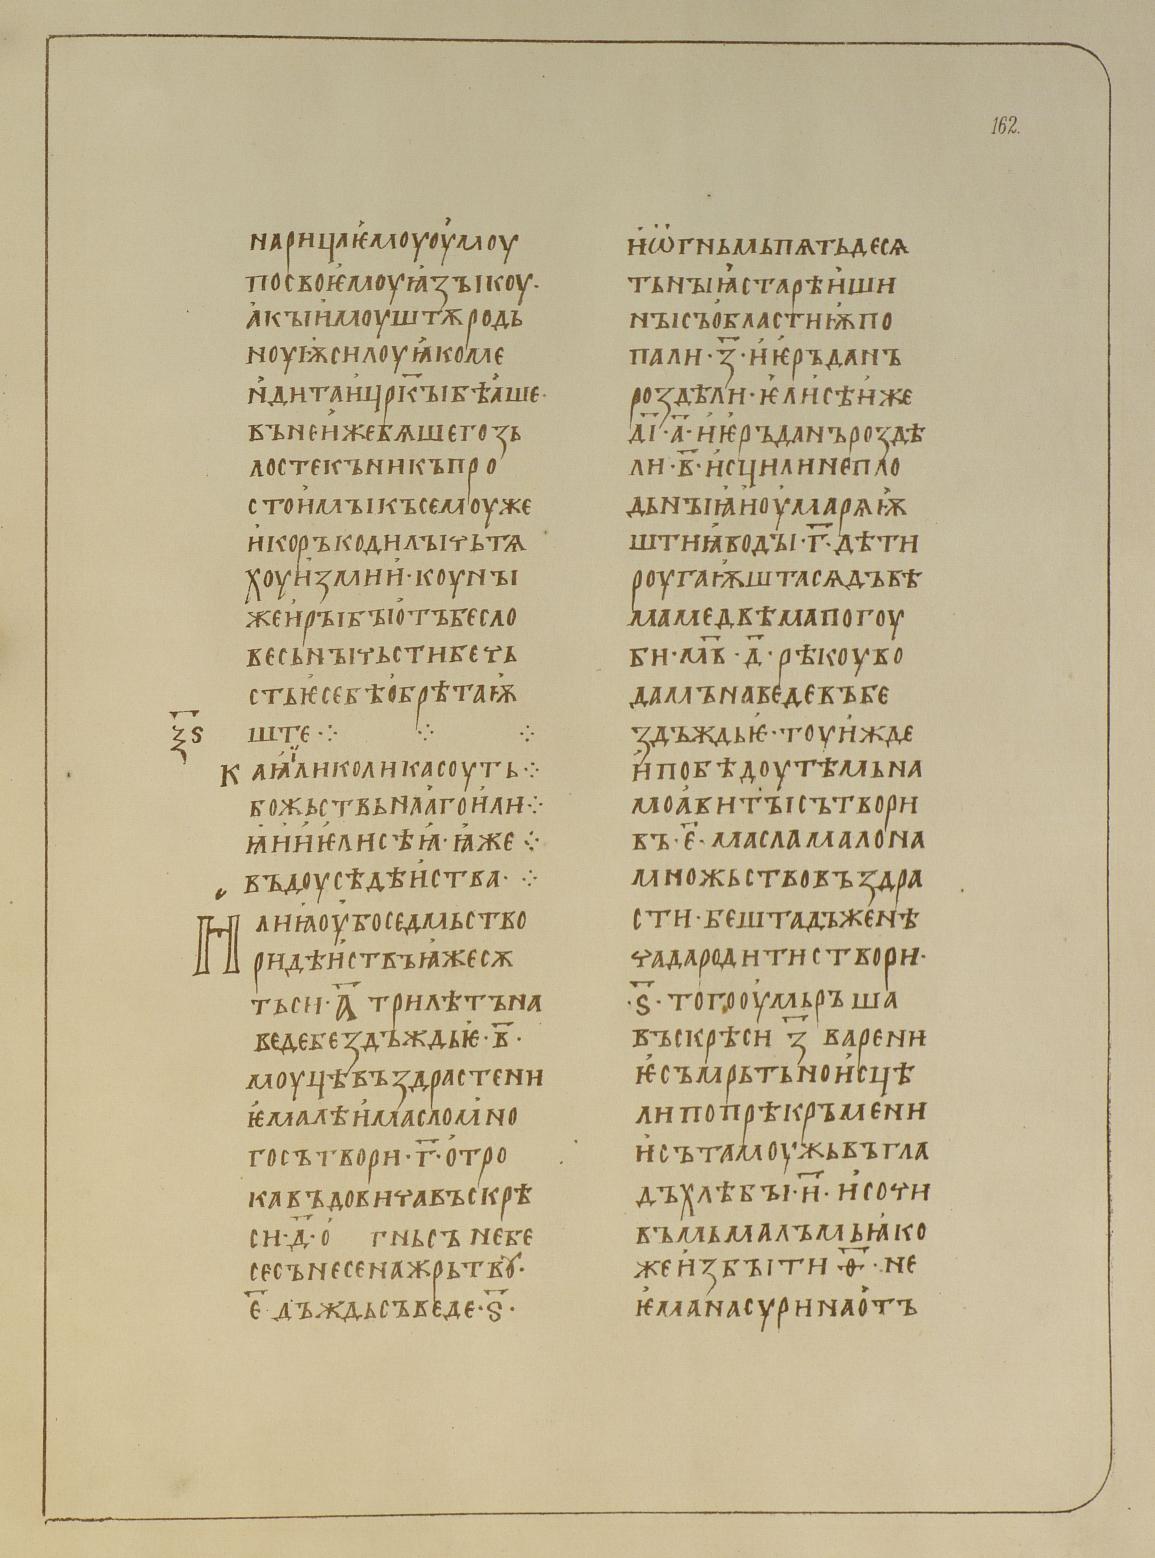 162.
нарицаѥмоуоумоу
посвоѥмоуꙗзъікоу·
акъіимоуштѫродь
ноуѭсилоуꙗколле
ндитаищрк҃ъібѣаше·
въненжевѧшегозь
лостекъникъпро
стоимъікъсемоуже
икоръкодилъічьтѧ
хоуизмии·коунъі
жеиръібъіотъбесло
весьнъічьстибечь
стьѥсебѣобрѣтаѭ
ште·⁘ ⁘ ⁘
з҃ѕ
каꙗликоликасоуть·⁘
божьствьнаагоили⁘
ꙗииѥлисѣꙗ·ꙗже⁘
въдоусѣдѣиства·⁘
Илиꙗоубоседмьство
ридѣиствъꙗжесѫ
тьси·а҃ трилѣтъна
ведебездъждьѥ·в҃·
моуцѣвъздрастени
ѥмалѣимасломно
госътвори·г҃·отро
кавъдовичавъскрѣ
си·д҃·о гньсънебе
сесънесенажрьтвꙋ·
е҃ дъждьсъведе·ѕ҃·
иѿгньмьпѧтьдесѧ
тьнъіꙗстарѣиши
нъісъобластиѭпо
пали·з҃·иѥръданъ
роздѣли·ѥлисѣиже
д҃і·а҃·иѥръданъроздѣ
ли·в҃·исцилинепло
дьнъіꙗиоумарѧѭ
штиꙗводъі·г҃·дѣти
роугаѭштасѧдъвѣ
мамедвѣмапогоу
би·м҃в·д҃·рѣкоуво
дамънаведевъбе
здъждьѥ·тоуижде
ипобѣдоутѣмьна
моавитъісътвори
въ·е҃·масламалона
множьствовъздра
сти·бештадъженѣ
чадародитиствори·
·ѕ҃·тогооумьръша
въскрѣси з҃ варени
ѥсъмрьтьноисцѣ
липопрѣкръмени
исътамоужьвъгла
дъхлѣбъі·и҃·исочи
въмьмалъмьꙗко
жеизбъіти ѳ҃·не
ѥманасуринаотъ